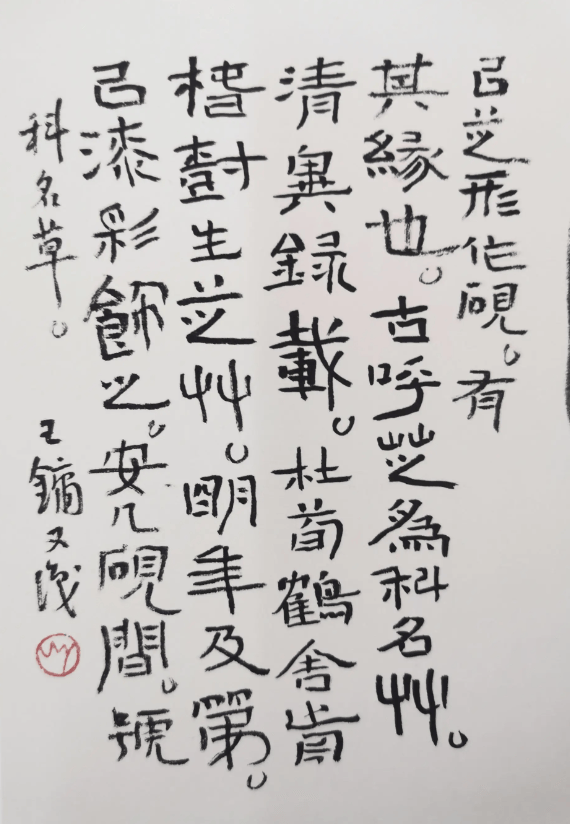 㠯芝形作硯。有
其緣也。古呼芝為科名艸。
清異録載。杜荀鶴舍歬
椿樹生芝艸。明年及第。
㠯漆彩飾之。安几硯間。號
科名草。
王鏞又識